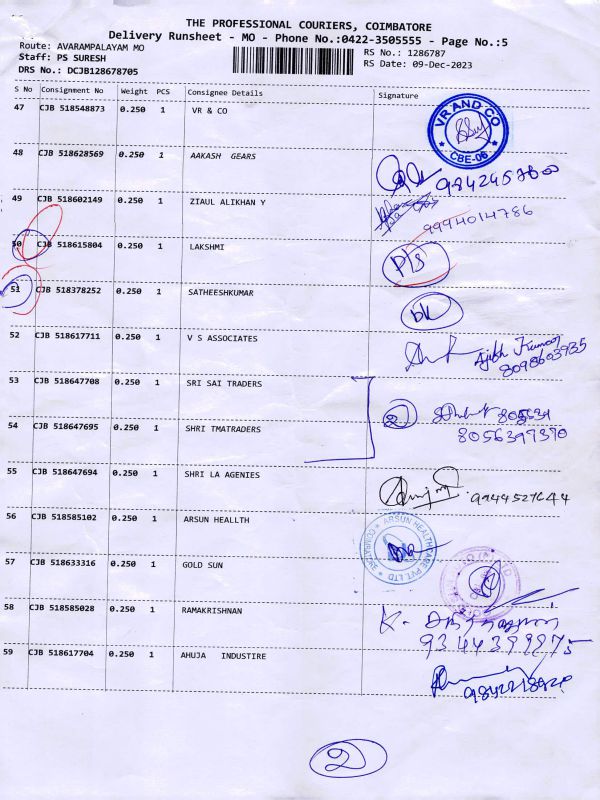 THE PROFESSIONAL COURIERS, COIMBATORE
Delivery Runsheet - MO - Phone No.:0422-3505555 - Page No.:5
Route: AVARAMPALAYAM MO
RS No.: 1286787
Staff: PS SURESH
RS Date: 09-Dec-2023
DRS No.: DCJB128678705
S No Consignment No Weight PCS Consignee Details Signature
47 CJB 518548873 0.250 1 VR & CO
VR AND CO
CBE-06
48 CJB 518628569 0.250 1 AAKASH GEARS
49 CJB 518602149 0.250 1 ZIAUL ALIKHAN Y
9994014786
50 CJB 518615804 0.250 1 LAKSHMI P/s
51 CJB 518378252 0.250 1 SATHEESHKUMAR
52 CJB 518617711 0.250 1 V S ASSOCIATES
Ajith Kumar
8098603935
53 CJB 518647708 0.250 1 SRI SAI TRADERS
2
54 CJB 518647695 0.250 1 SHRI TMATRADERS
8056397390
55 CJB 518647694 0.250 1 SHRI LA AGENIES
9944527644
56 CJB 518585102 0.250 1 ARSUN HEALLTH
ARSUN HEALTHCARE PVT LTD
COIMBATORE
57 CJB 518633316 0.250 1 GOLD SUN
58 CJB 518585028 0.250 1 RAMAKRISHNAN
K.
9344399975
59 CJB 518617704 0.250 1 AHUJA INDUSTIRE
2